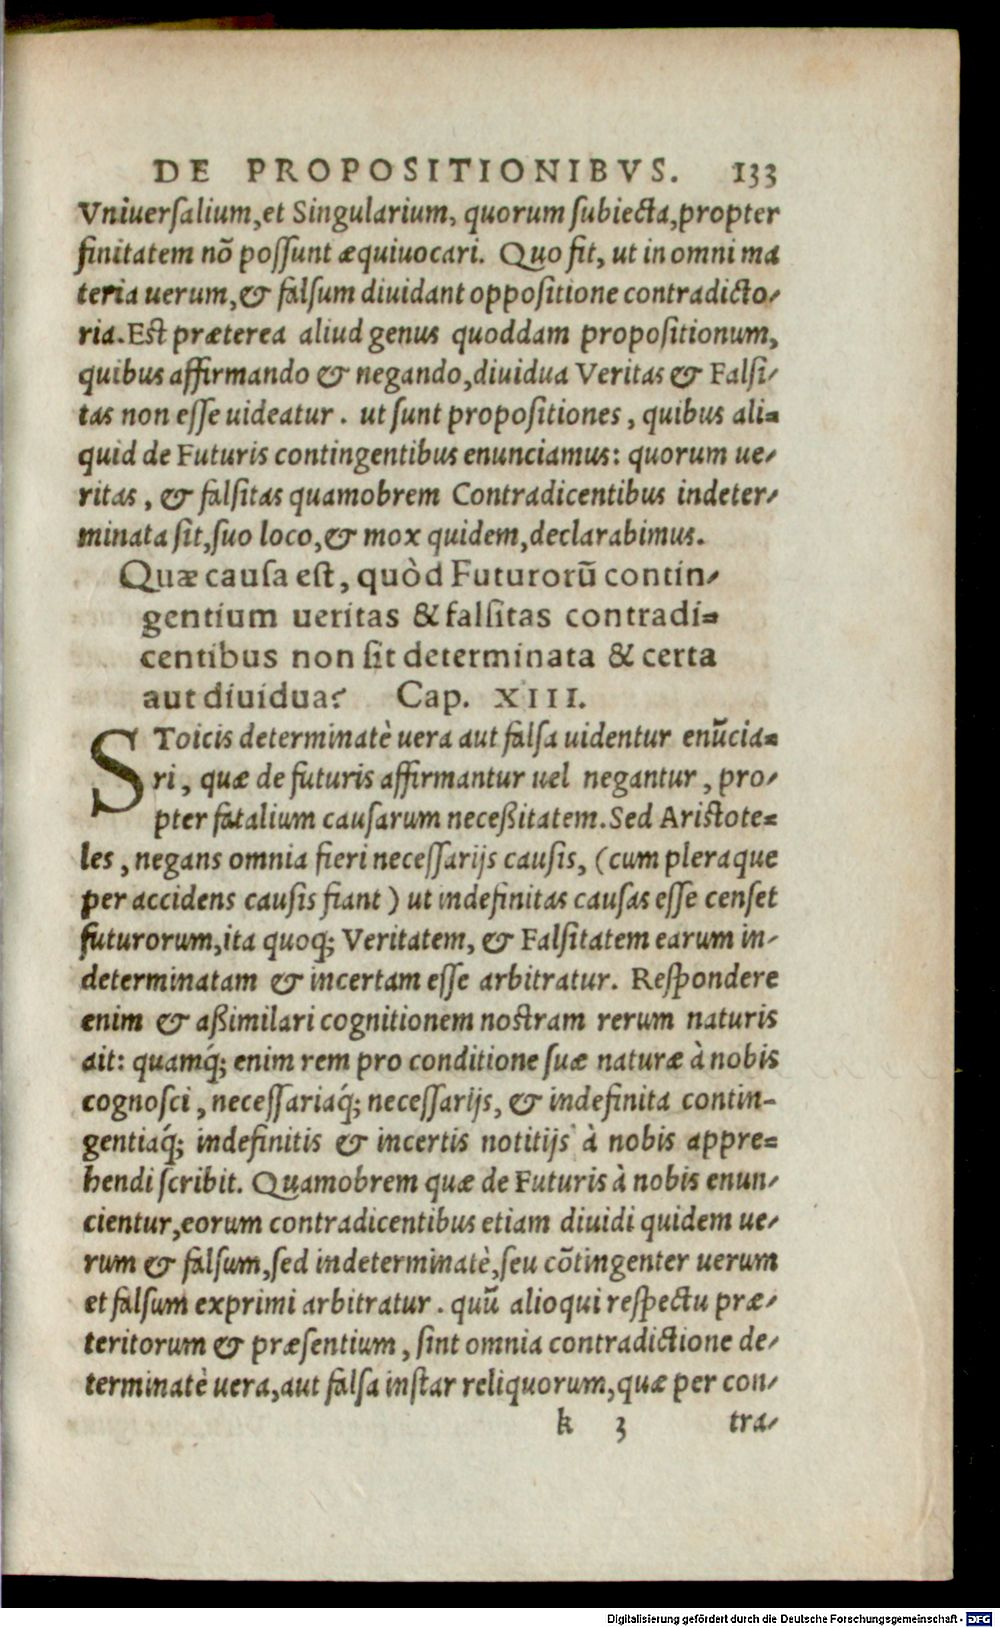 DE PROPOSITIONIBVS. 133
Vniuersalium, et Singularium, quorum subiecta, propter
finitatem nõ possunt æquiuocari. Quo fit, ut in omni ma
teria uerum, & falsum diuidant oppositione contradicto-
ria. Est præterea aliud genus quoddam propositionum,
quibus affirmando & negando, diuidua Veritas & Falsi-
tas non esse uideatur. ut sunt propositiones, quibus ali-
quid de Futuris contingentibus enunciamus: quorum ue-
ritas, & falsitas quamobrem Contradicentibus indeter-
minata sit, suo loco, & mox quidem, declarabimus.
Quæ causa est, quòd Futurorũ contin-
gentium ueritas & falsitas contradi-
centibus non sit determinata & certa
aut diuidua? Cap. XIII.
SToicis determinatè uera aut falsa uidentur enũcia-
ri, quæ de futuris affirmantur uel negantur, pro-
pter fatalium causarum neceßitatem. Sed Aristote-
les, negans omnia fieri necessarijs causis, (cum pleraque
per accidens causis fiant) ut indefinitas causas esse censet
futurorum, ita quoq; Veritatem, & Falsitatem earum in-
determinatam & incertam esse arbitratur. Respondere
enim & aßimilari cognitionem nostram rerum naturis
ait: quamq́; enim rem pro conditione suæ naturæ à nobis
cognosci, necessariaq́; necessarijs, & indefinita contin-
gentiaq́; indefinitis & incertis notitijs à nobis appre-
hendi scribit. Quamobrem quæ de Futuris à nobis enun-
cientur, eorum contradicentibus etiam diuidi quidem ue-
rum & falsum, sed indeterminatè, seu cõtingenter uerum
et falsum exprimi arbitratur. quũ alioqui respectu præ-
teritorum & præsentium, sint omnia contradictione de-
terminatè uera, aut falsa instar reliquorum, quæ per con-
k 3 tra-
Digitalisierung gefördert durch die Deutsche Forschungsgemeinschaft - DFG